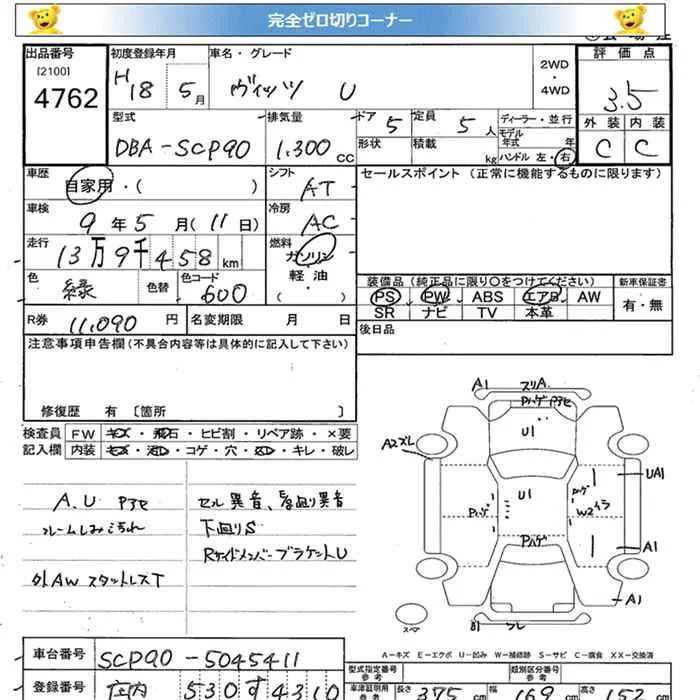 完全ゼロ切りコーナー
出品番号 [2100] 4762
初度登録年月 H18 5月
車名・グレード ヴィッツ U
2WD・4WD
評価点 3.5
型式 DBA-SCP90
排気量 1,300 CC
ドア 5
形状
定員 5 人
積載 kg
ディーラー・並行
モデル年式 年
ハンドル 左・右
外装 内装
C C
車歴 自家用・( )
シフト AT
セールスポイント (正常に機能するものに限ります)
車検 9年5月(11日)
冷房 AC
走行 13万9千458 km
燃料 ガソリン
軽油
( ・ )
色 緑 色替 色コード 600
装備品 (純正品に限り○をつけてください) 新車保証書
PS PW ABS エアB AW 有・無
SR ナビ TV 本革
R券 11,090 円 名変期限 月 日
後日品
注意事項申告欄(不具合内容等は具体的に記入して下さい)
修復歴 有 〔箇所 〕
検査員 FW キズ・飛石・ヒビ割・リペア跡・×要
記入欄 内装 キズ・汚れ・コゲ・穴・凹・キレ・破レ
A.U Pアセ
フレームしみ汚れ
外AW スタットレスT
セル異音、足廻り異音
下廻りS
RサイドメンバーブラケットU
A1 スリA.
Pハゲ Pアセ
U1
A2ズレ
U1
UA1
Pハゲ
Pハゲ
W2イラ
Pハゲ
A1
A1
スペア
B1 ズレ
A-キズ E-エクボ U-凹み W-補修跡 S-サビ C-腐食 XX-交換済
車台番号 SCP90-5045411
型式指定番号 参考
類別区分番号 参考
登録番号 庄内 530 す 4310
車庫証明用 参考 長さ 375 cm 幅 169 cm 高さ 152 cm